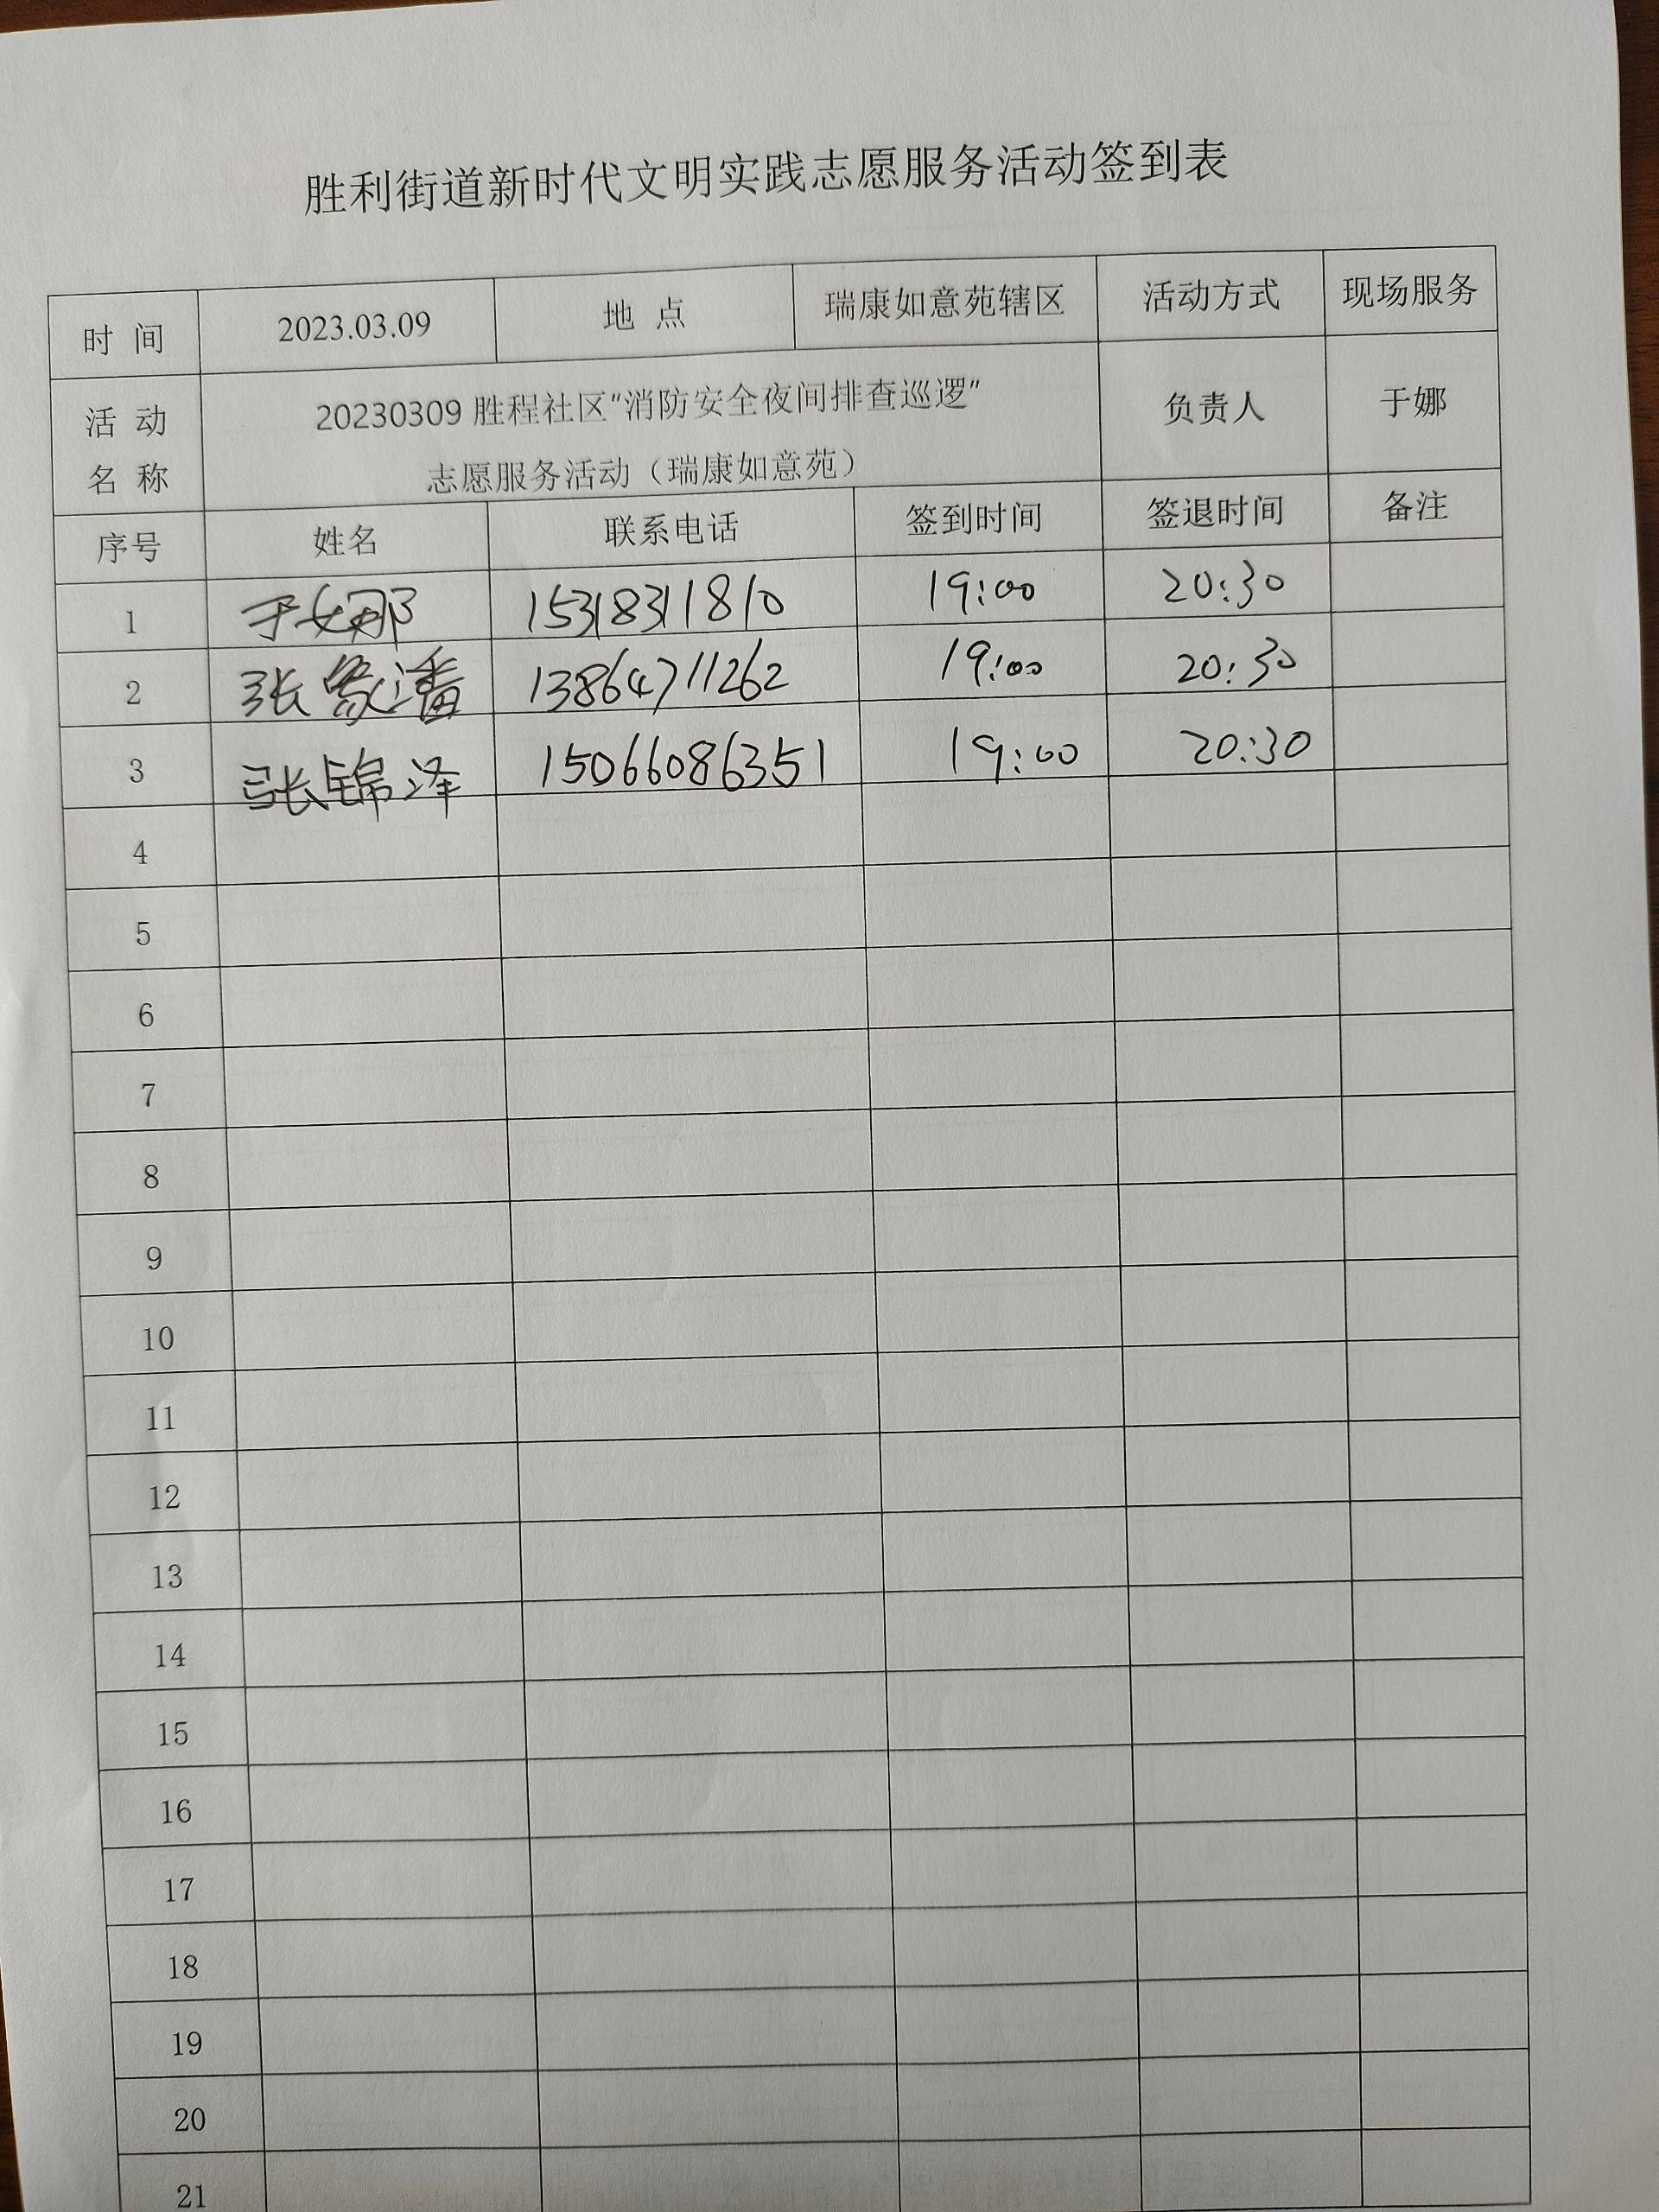 胜利街道新时代文明实践志愿服务活动签到表
时 间 2023.03.09 地 点 瑞康如意苑辖区 活动方式 现场服务
活 动 名 称 20230309 胜程社区"消防安全夜间排查巡逻" 负责人 于娜
志愿服务活动（瑞康如意苑）
序号 姓名 联系电话 签到时间 签退时间 备注
1 于娜 15318311810 19:00 20:30
2 张潘 13864711262 19:00 20:30
3 张锦泽 15066086351 19:00 20:30
4
5
6
7
8
9
10
11
12
13
14
15
16
17
18
19
20
21